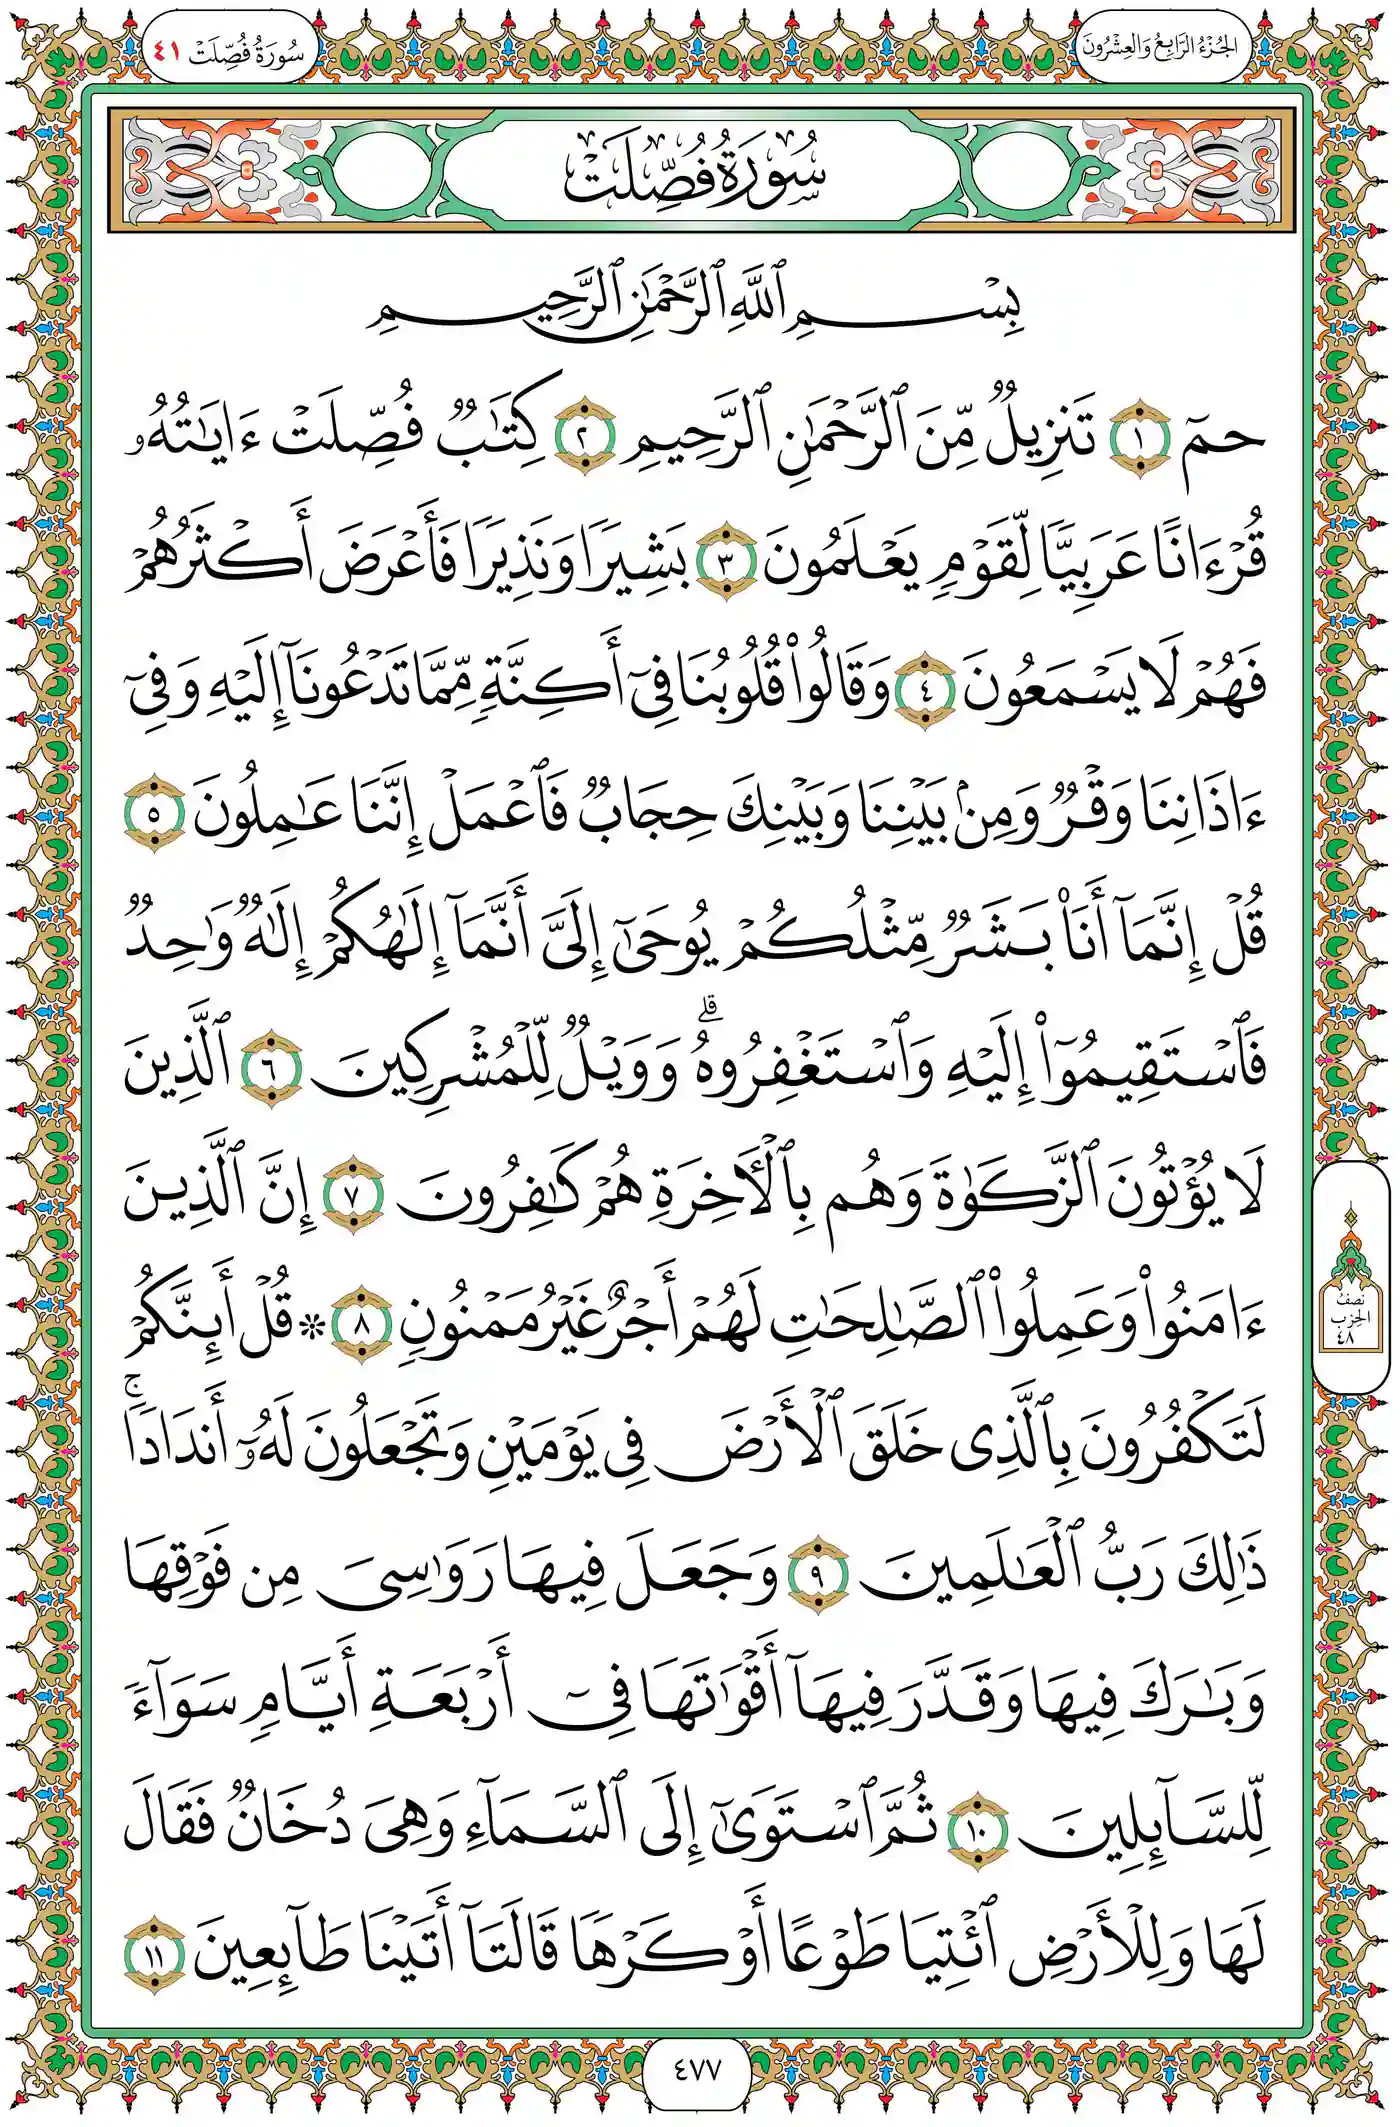 الجُزْءُ الرَّابِعُ وَالعِشْرُونَ
سُورَةُ فُصِّلَتْ ٤١
سُورَةُ فُصِّلَتْ
بِسْمِ ٱللَّهِ ٱلرَّحْمَٰنِ ٱلرَّحِيمِ
حمٓ ١ تَنزِيلٌ مِّنَ ٱلرَّحْمَٰنِ ٱلرَّحِيمِ ٢ كِتَٰبٌ فُصِّلَتْ ءَايَٰتُهُۥ
قُرْءَانًا عَرَبِيًّا لِّقَوْمٍ يَعْلَمُونَ ٣ بَشِيرًا وَنَذِيرًا فَأَعْرَضَ أَكْثَرُهُمْ
فَهُمْ لَا يَسْمَعُونَ ٤ وَقَالُوا۟ قُلُوبُنَا فِىٓ أَكِنَّةٍ مِّمَّا تَدْعُونَآ إِلَيْهِ وَفِىٓ
ءَاذَانِنَا وَقْرٌ وَمِنۢ بَيْنِنَا وَبَيْنِكَ حِجَابٌ فَٱعْمَلْ إِنَّنَا عَٰمِلُونَ ٥
قُلْ إِنَّمَآ أَنَا۠ بَشَرٌ مِّثْلُكُمْ يُوحَىٰٓ إِلَىَّ أَنَّمَآ إِلَٰهُكُمْ إِلَٰهٌ وَٰحِدٌ
فَٱسْتَقِيمُوٓا۟ إِلَيْهِ وَٱسْتَغْفِرُوهُ ۗ وَوَيْلٌ لِّلْمُشْرِكِينَ ٦ ٱلَّذِينَ
لَا يُؤْتُونَ ٱلزَّكَوٰةَ وَهُم بِٱلْـَٔاخِرَةِ هُمْ كَٰفِرُونَ ٧ إِنَّ ٱلَّذِينَ
ءَامَنُوا۟ وَعَمِلُوا۟ ٱلصَّٰلِحَٰتِ لَهُمْ أَجْرٌ غَيْرُ مَمْنُونٍ ٨ * قُلْ أَئِنَّكُمْ
لَتَكْفُرُونَ بِٱلَّذِى خَلَقَ ٱلْأَرْضَ فِى يَوْمَيْنِ وَتَجْعَلُونَ لَهُۥٓ أَندَادًا ۚ
ذَٰلِكَ رَبُّ ٱلْعَٰلَمِينَ ٩ وَجَعَلَ فِيهَا رَوَٰسِىَ مِن فَوْقِهَا
وَبَٰرَكَ فِيهَا وَقَدَّرَ فِيهَآ أَقْوَٰتَهَا فِىٓ أَرْبَعَةِ أَيَّامٍ سَوَآءً
لِّلسَّآئِلِينَ ١٠ ثُمَّ ٱسْتَوَىٰٓ إِلَى ٱلسَّمَآءِ وَهِىَ دُخَانٌ فَقَالَ
لَهَا وَلِلْأَرْضِ ٱئْتِيَا طَوْعًا أَوْ كَرْهًا قَالَتَآ أَتَيْنَا طَآئِعِينَ ١١
نصف
الحزب
٤٨
٤٧٧